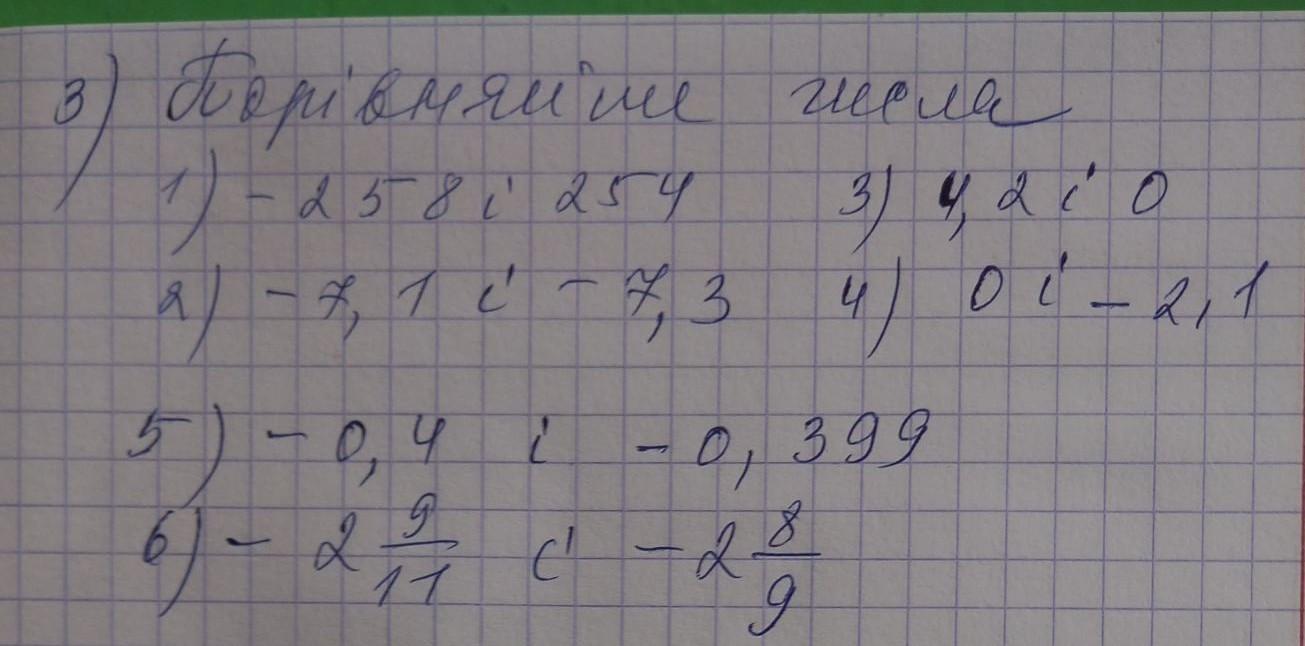 3) Порівняйте числа
1) - 258 і 254 3) 4,2 і 0
2) - 7,1 і - 7,3 4) 0 і - 2,1
5) - 0,4 і - 0,399
6) - 2 9/11 і - 2 8/9